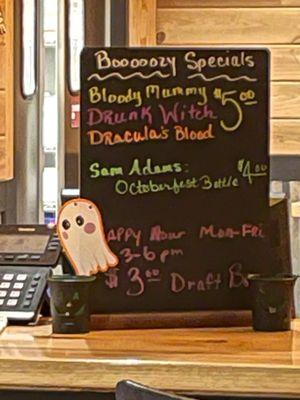 Booooozy Specials
Bloody Mummy
Drunk Witch $5.00
Dracula's Blood
Sam Adams: $4.00
Octoberfest Bottle
appy Hour Mon-Fri
3-6pm
$3.00 Draft B